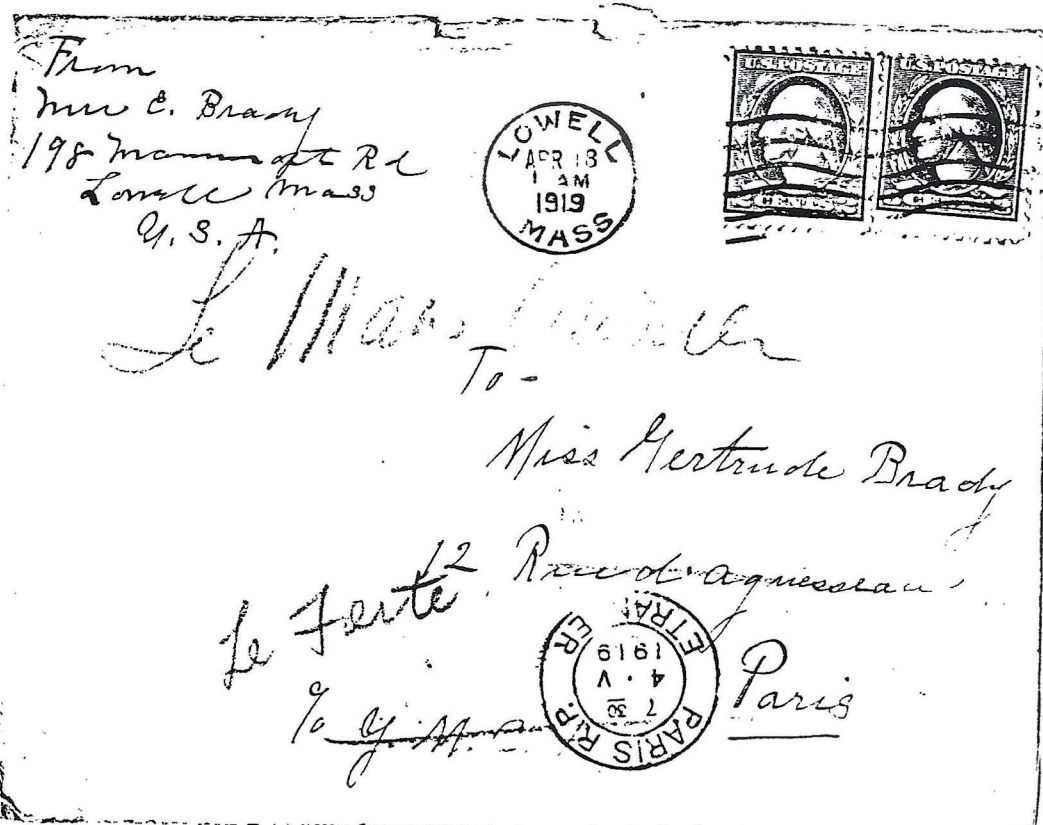 From
E. Brady
198 Rd
Lowell Mass
U.S.A.
LOWELL
APR 18
1 AM
1919
MASS
U.S. POSTAGE
U.S. POSTAGE
Le Mans
To -
Miss Gertrude Brady
12 Rue d'aguesseau
Le Ferte
PARIS R.P. ETRANGER
7 30
4 . V
1919
Paris
c/o Y.M.